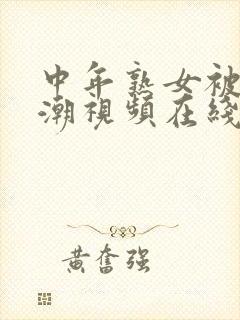 中年熟女被
潮視頻在綫
黃奮强